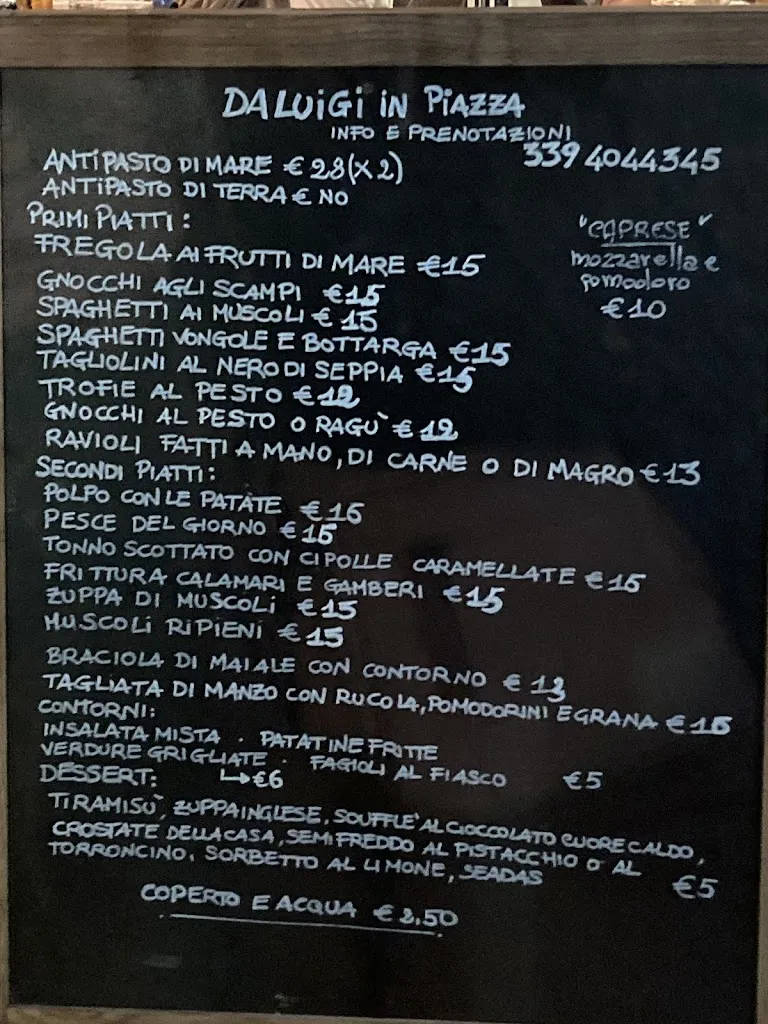 DA LUIGI IN PIAZZA
INFO E PRENOTAZIONI
339 4044345
ANTIPASTO DI MARE € 28 (X 2)
ANTIPASTO DI TERRA € NO
PRIMI PIATTI:
FREGOLA AI FRUTTI DI MARE €15
GNOCCHI AGLI SCAMPI €15
SPAGHETTI AI MUSCOLI € 15
SPAGHETTI VONGOLE E BOTTARGA €15
TAGLIOLINI AL NERO DI SEPPIA €15
TROFIE AL PESTO €12
GNOCCHI AL PESTO O RAGÙ € 12
RAVIOLI FATTI A MANO, DI CARNE O DI MAGRO €13
"CAPRESE"
mozzarella e
pomodoro
€10
SECONDI PIATTI:
POLPO CON LE PATATE €16
PESCE DEL GIORNO €16
TONNO SCOTTATO CON CIPOLLE CARAMELLATE €16
FRITTURA CALAMARI E GAMBERI €15
ZUPPA DI MUSCOLI €15
MUSCOLI RIPIENI €15
BRACIOLA DI MAIALE CON CONTORNO € 13
TAGLIATA DI MANZO CON RUCOLA, POMODORINI E GRANA €16
CONTORNI:
INSALATA MISTA · PATATINE FRITTE
VERDURE GRIGLIATE · FAGIOLI AL FIASCO €5
↳€6
DESSERT:
TIRAMISÙ, ZUPPA INGLESE, SOUFFLE' AL CIOCCOLATO CUORE CALDO,
CROSTATE DELLA CASA, SEMIFREDDO AL PISTACCHIO O AL
TORRONCINO, SORBETTO AL LIMONE, SEADAS €5
COPERTO E ACQUA €2,50